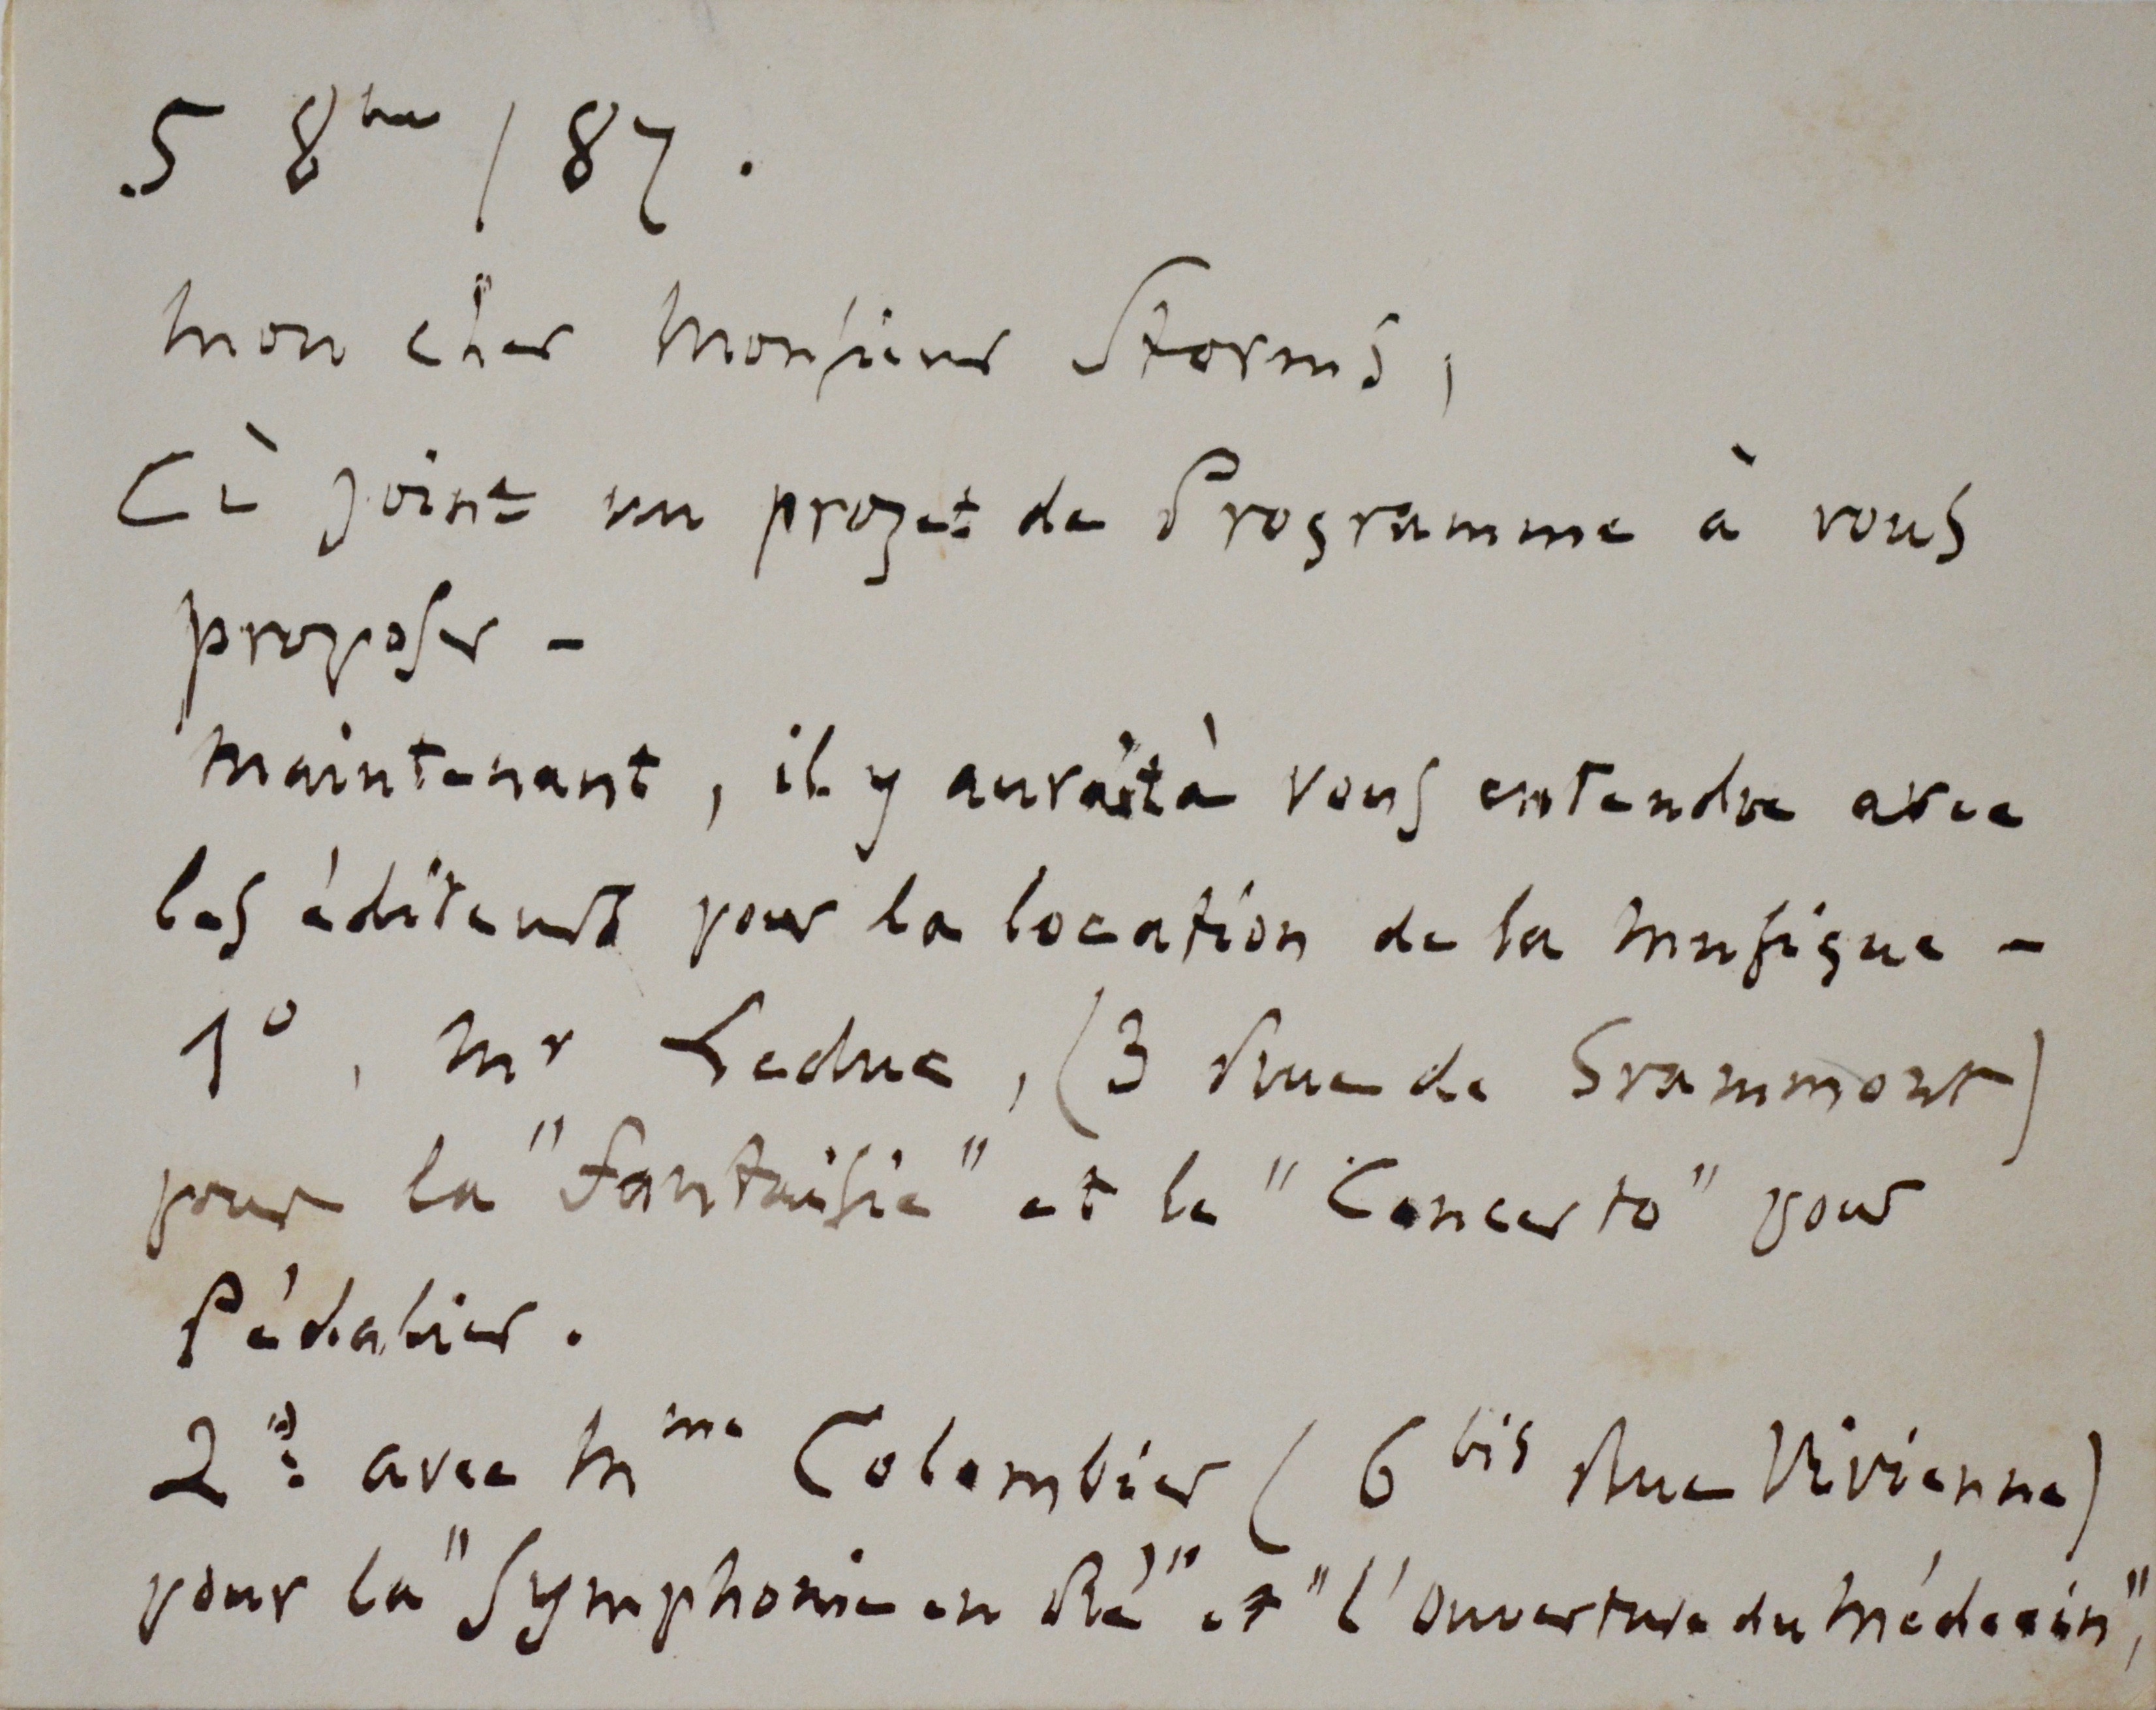 5 8bre / 87.
Mon cher Monsieur Storms,
Ci joint un projet de Programme à vous
proposer -
Maintenant, il y aurait à vous entendre avec
les éditeurs pour la location de la musique -
1°, Mr Leduc, (3 Rue de Grammont)
pour la "Fantaisie" et le "Concerto" pour
Pédalier.
2° avec Mme Colombier (6 bis Rue Vivienne)
pour la "Symphonie en Ré" et "l'ouverture du Médecin",